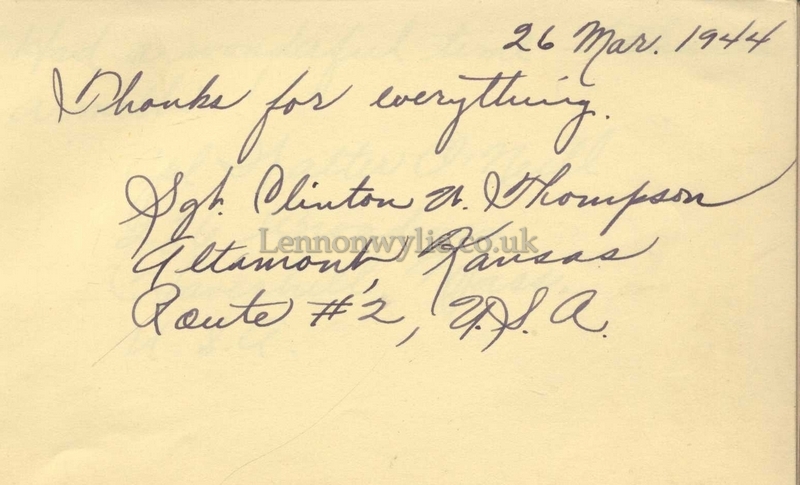 26 Mar. 1944
Thanks for everything.
Sgt. Clinton W. Thompson
Lennonwylie.co.uk
Altamont, Kansas
Route #2, U.S.A.